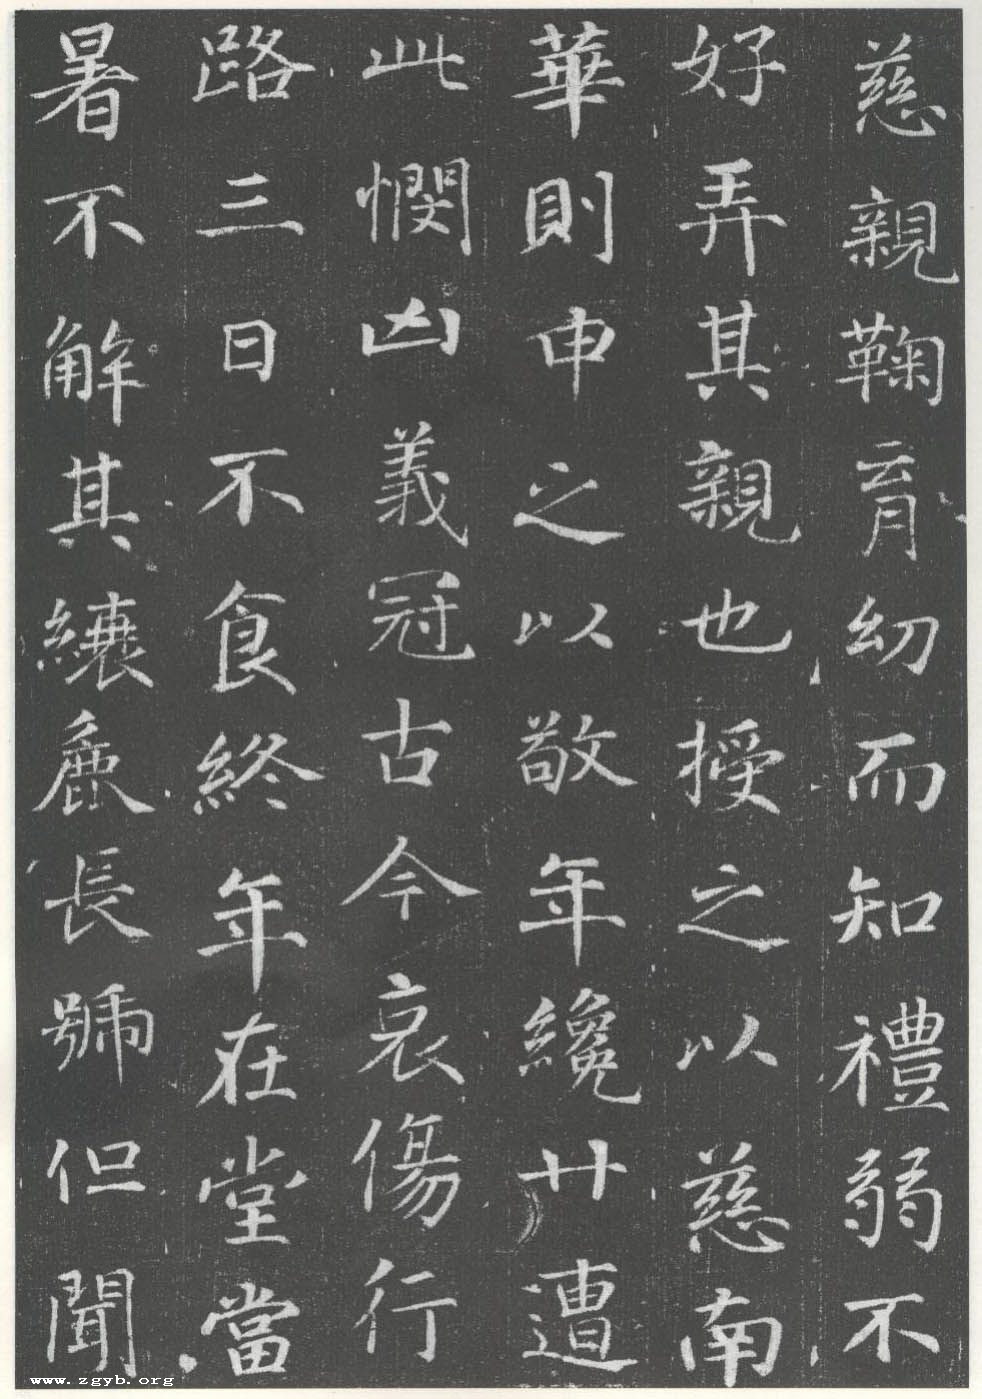 慈親鞠育幼而知禮弱不
好弄其親也授之以慈南
華則申之以敬年纔廿遭
此憫凶義冠古今哀傷行
路三日不食終年在堂當
暑不解其纕麁長號但聞
www.zgyb.org